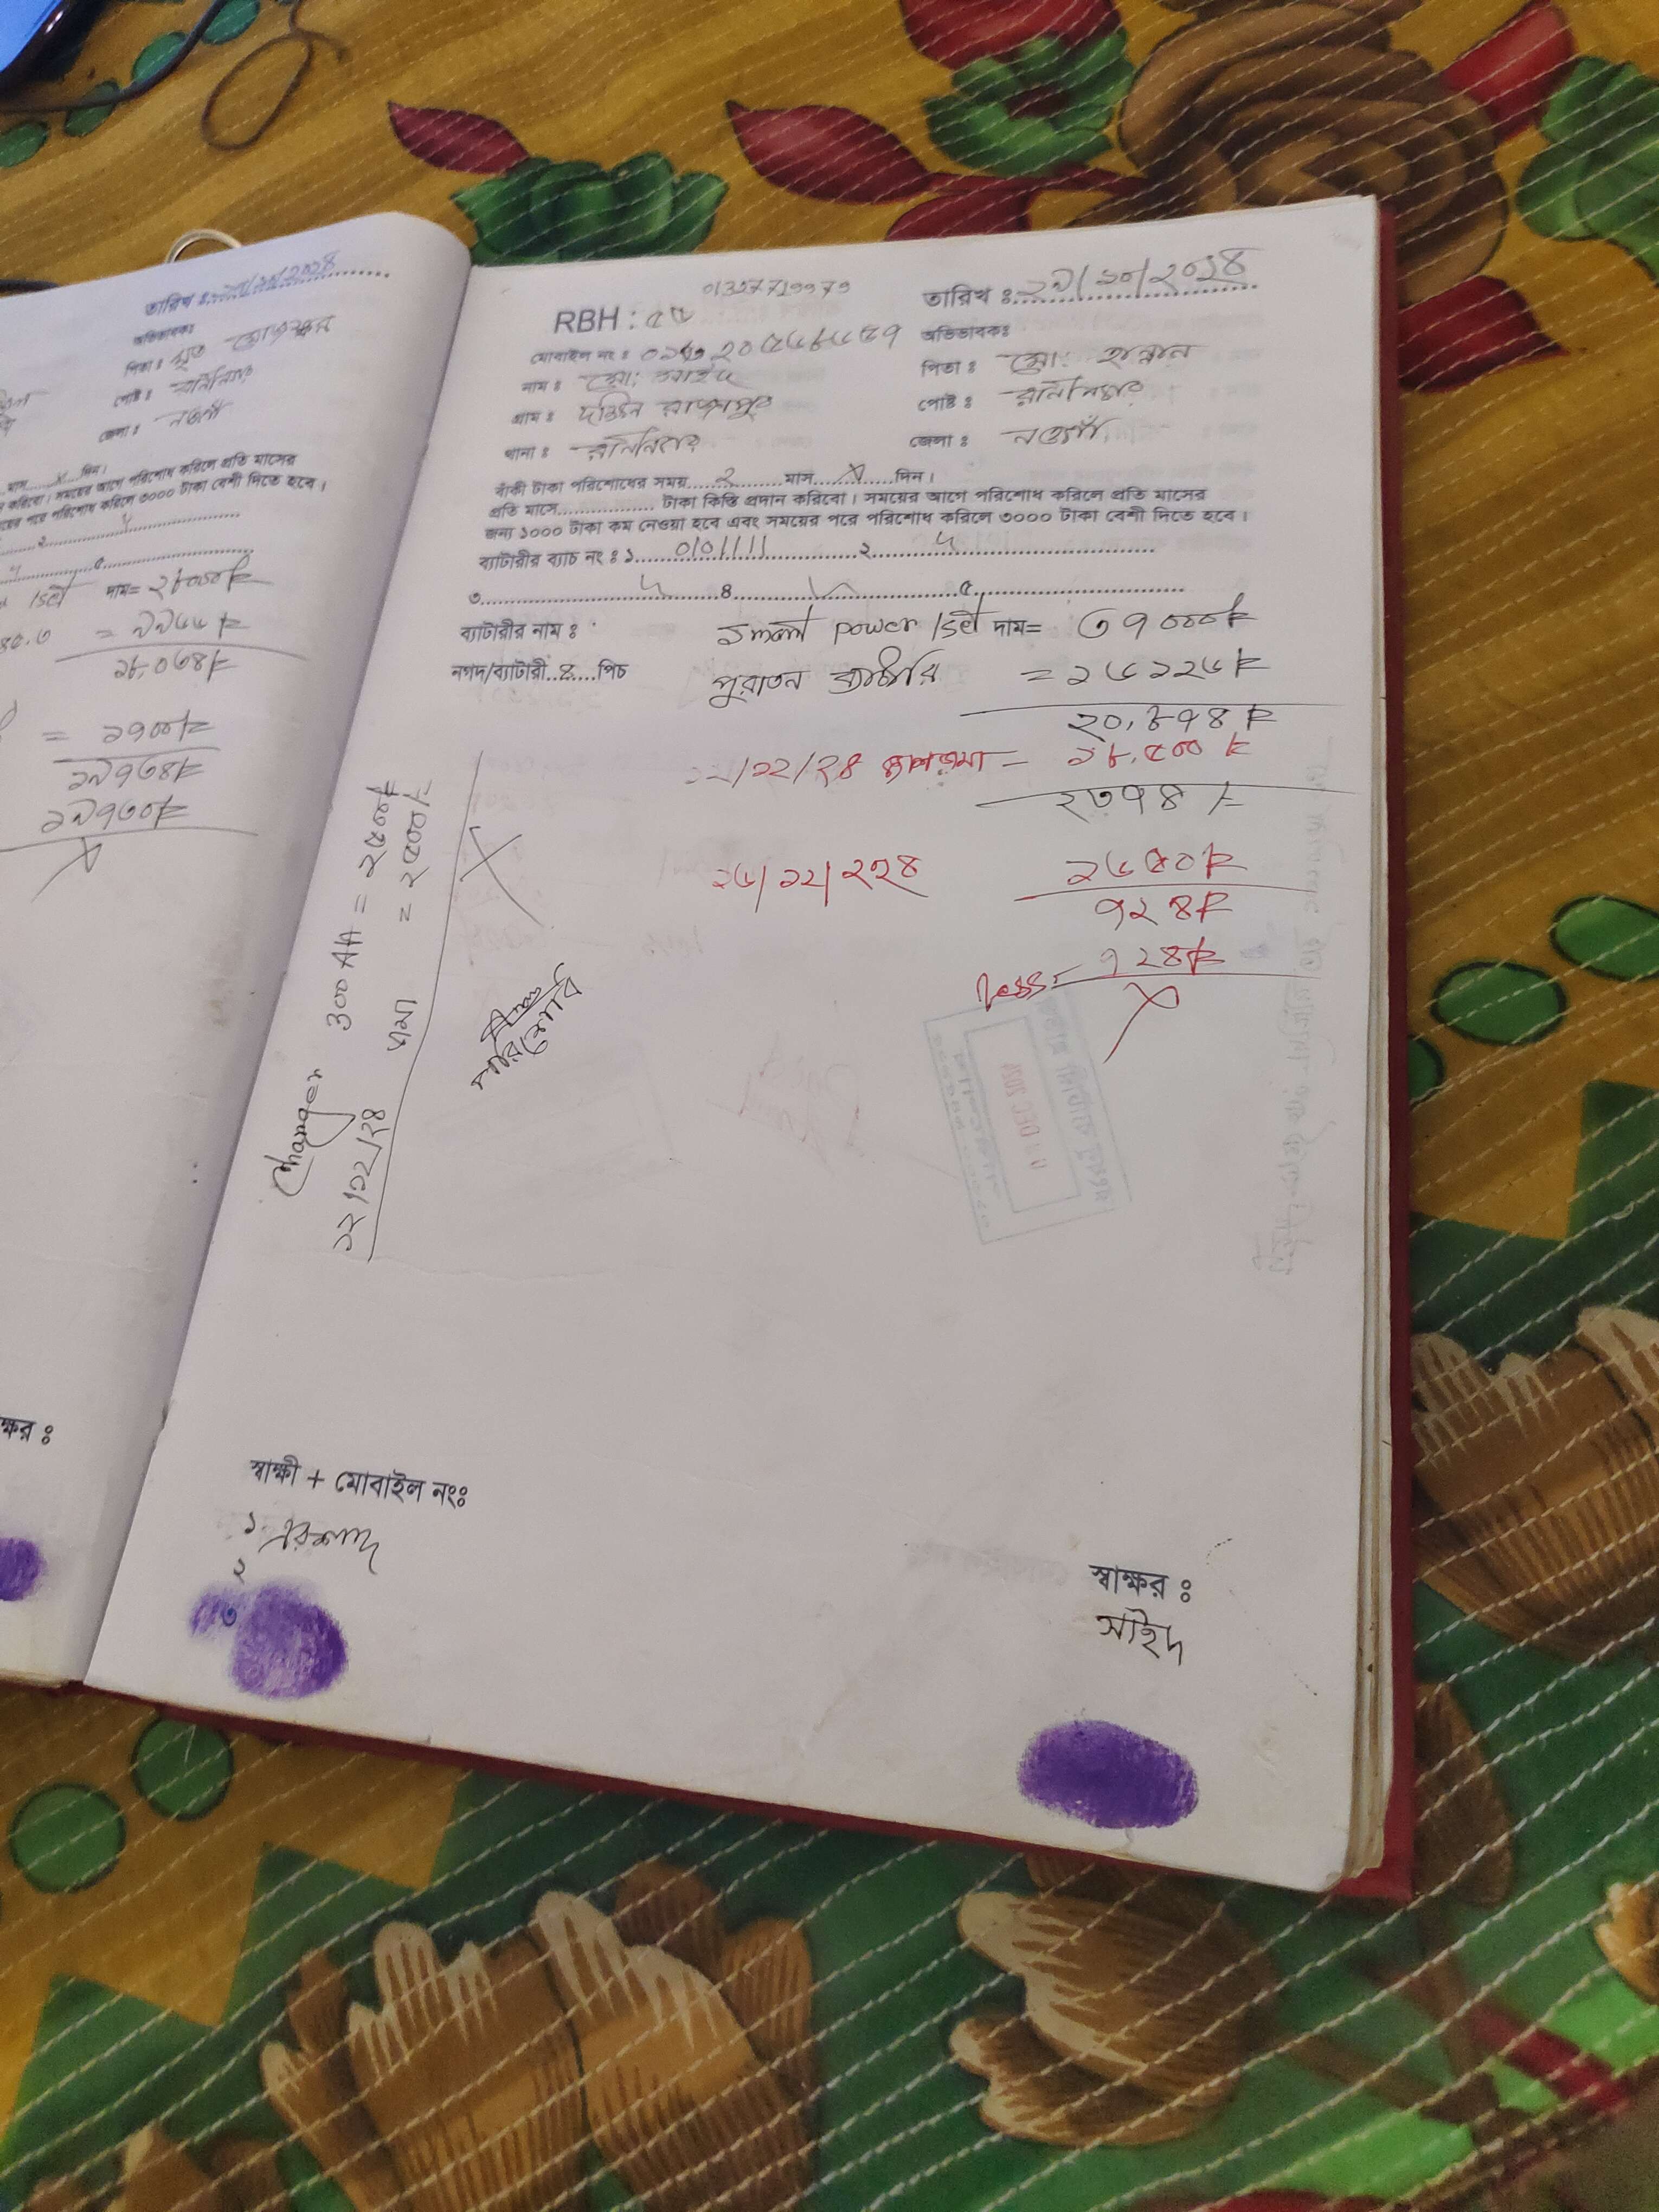 তারিখ ঃ
অভিভাবকঃ
পিতা ঃ মৃত
পোষ্ট ঃ রানীনগর
জেলা ঃ নওগাঁ
মাস দিন।
করিবো। সময়ের আগে পরিশোধ করিলে প্রতি মাসের
পরে পরিশোধ করিলে ৩০০০ টাকা বেশী দিতে হবে।
২
৫
1set দাম= ২৮০০০/=
= ৯৯৬৬/=
১৮,০৩৪/=
= ১৭০০/=
১৯৭৩৪/=
১৯৭৩০/=
ক্ষর ঃ
RBH : ৫৫
তারিখ ঃ ২৯/১০/২০২৪
মোবাইল নং ঃ
অভিভাবকঃ
নাম ঃ মো: সাইদ
পিতা ঃ মো: হান্নান
গ্রাম ঃ দক্ষিন রাজাপুর
পোষ্ট ঃ রানীনগর
থানা ঃ রানীনগর
জেলা ঃ নওগাঁ
বাঁকী টাকা পরিশোধের সময় ২ মাস X দিন।
প্রতি মাসে টাকা কিস্তি প্রদান করিবো। সময়ের আগে পরিশোধ করিলে প্রতি মাসের
জন্য ১০০০ টাকা কম নেওয়া হবে এবং সময়ের পরে পরিশোধ করিলে ৩০০০ টাকা বেশী দিতে হবে।
ব্যাটারীর ব্যাচ নং ঃ ১ 0101111 ২
৩ ৪ ৫
ব্যাটারীর নাম ঃ Smart power 1set দাম= ৩৭০০০/=
নগদ/ব্যাটারী ৪ পিচ পুরাতন ব্যাটারি = ১৬১২৬/=
২০,৮৭৪/=
১২/১২/২৪ জমা = ১৮,৫০০/=
২৩৭৪/=
১৬/১২/২০২৪ ১৬৫০/=
৭২৪/=
Less = ৭২৪/=
X
Charger 300 AH = ২৫০০/=
১২/১২/২৪ জমা = ২৫০০/=
X
পরিশোধ
স্বাক্ষী + মোবাইল নংঃ
১. এরশাদ
২
৩
স্বাক্ষর ঃ
সাইদ